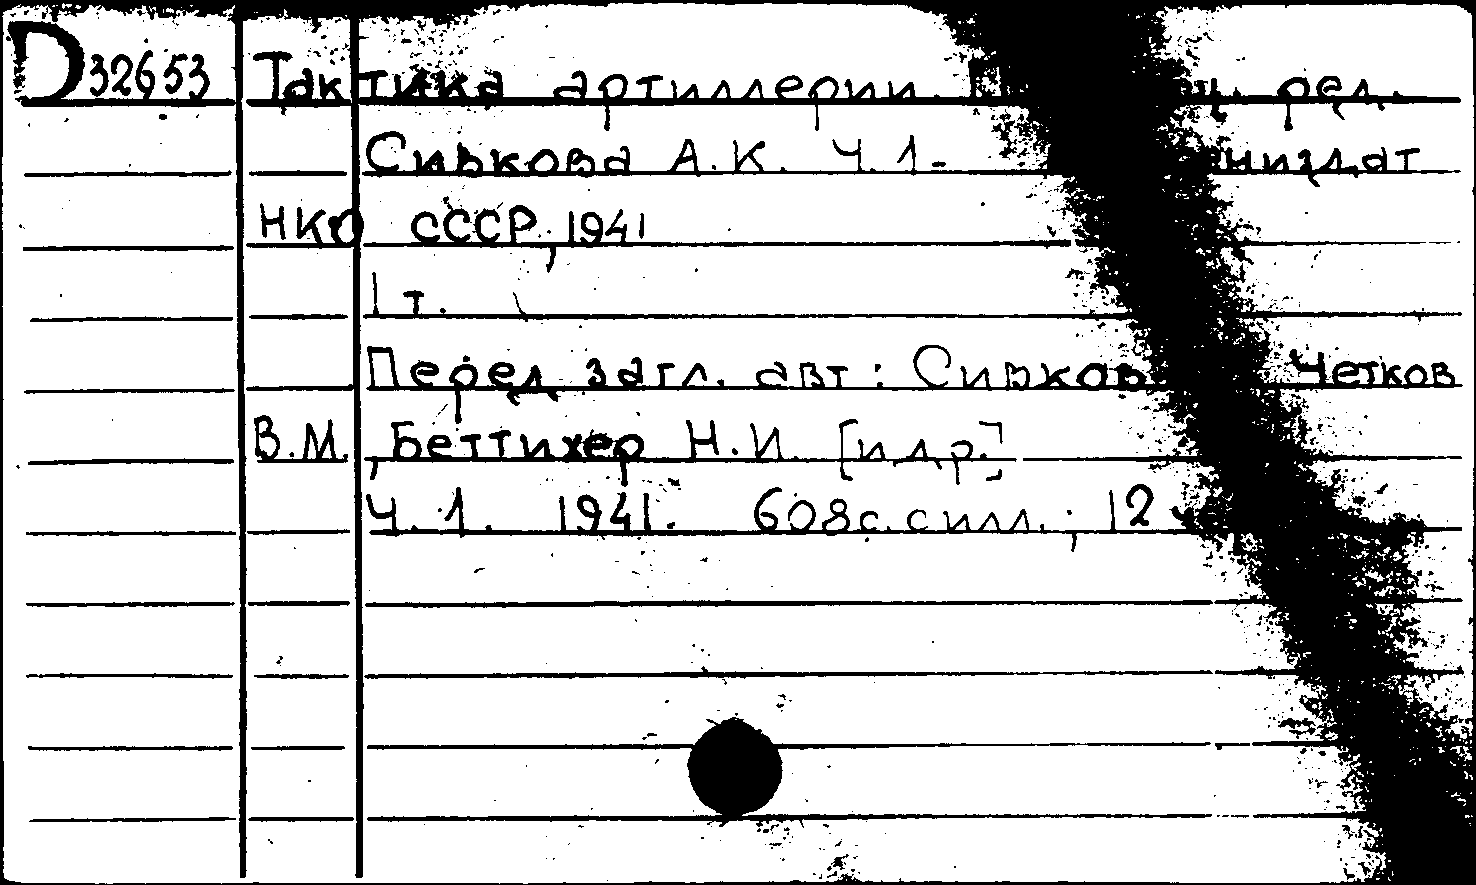 D 32653 Тактика артиллерии. ред.
Сивкова А.К. Ч.1-
НКО СССР, 1941
1 т.
Перед загл. авт: Сивков Четков
В.М., Беттихер Н.И. [и др.]
Ч. 1. 1941. 608 с. с илл.; 12